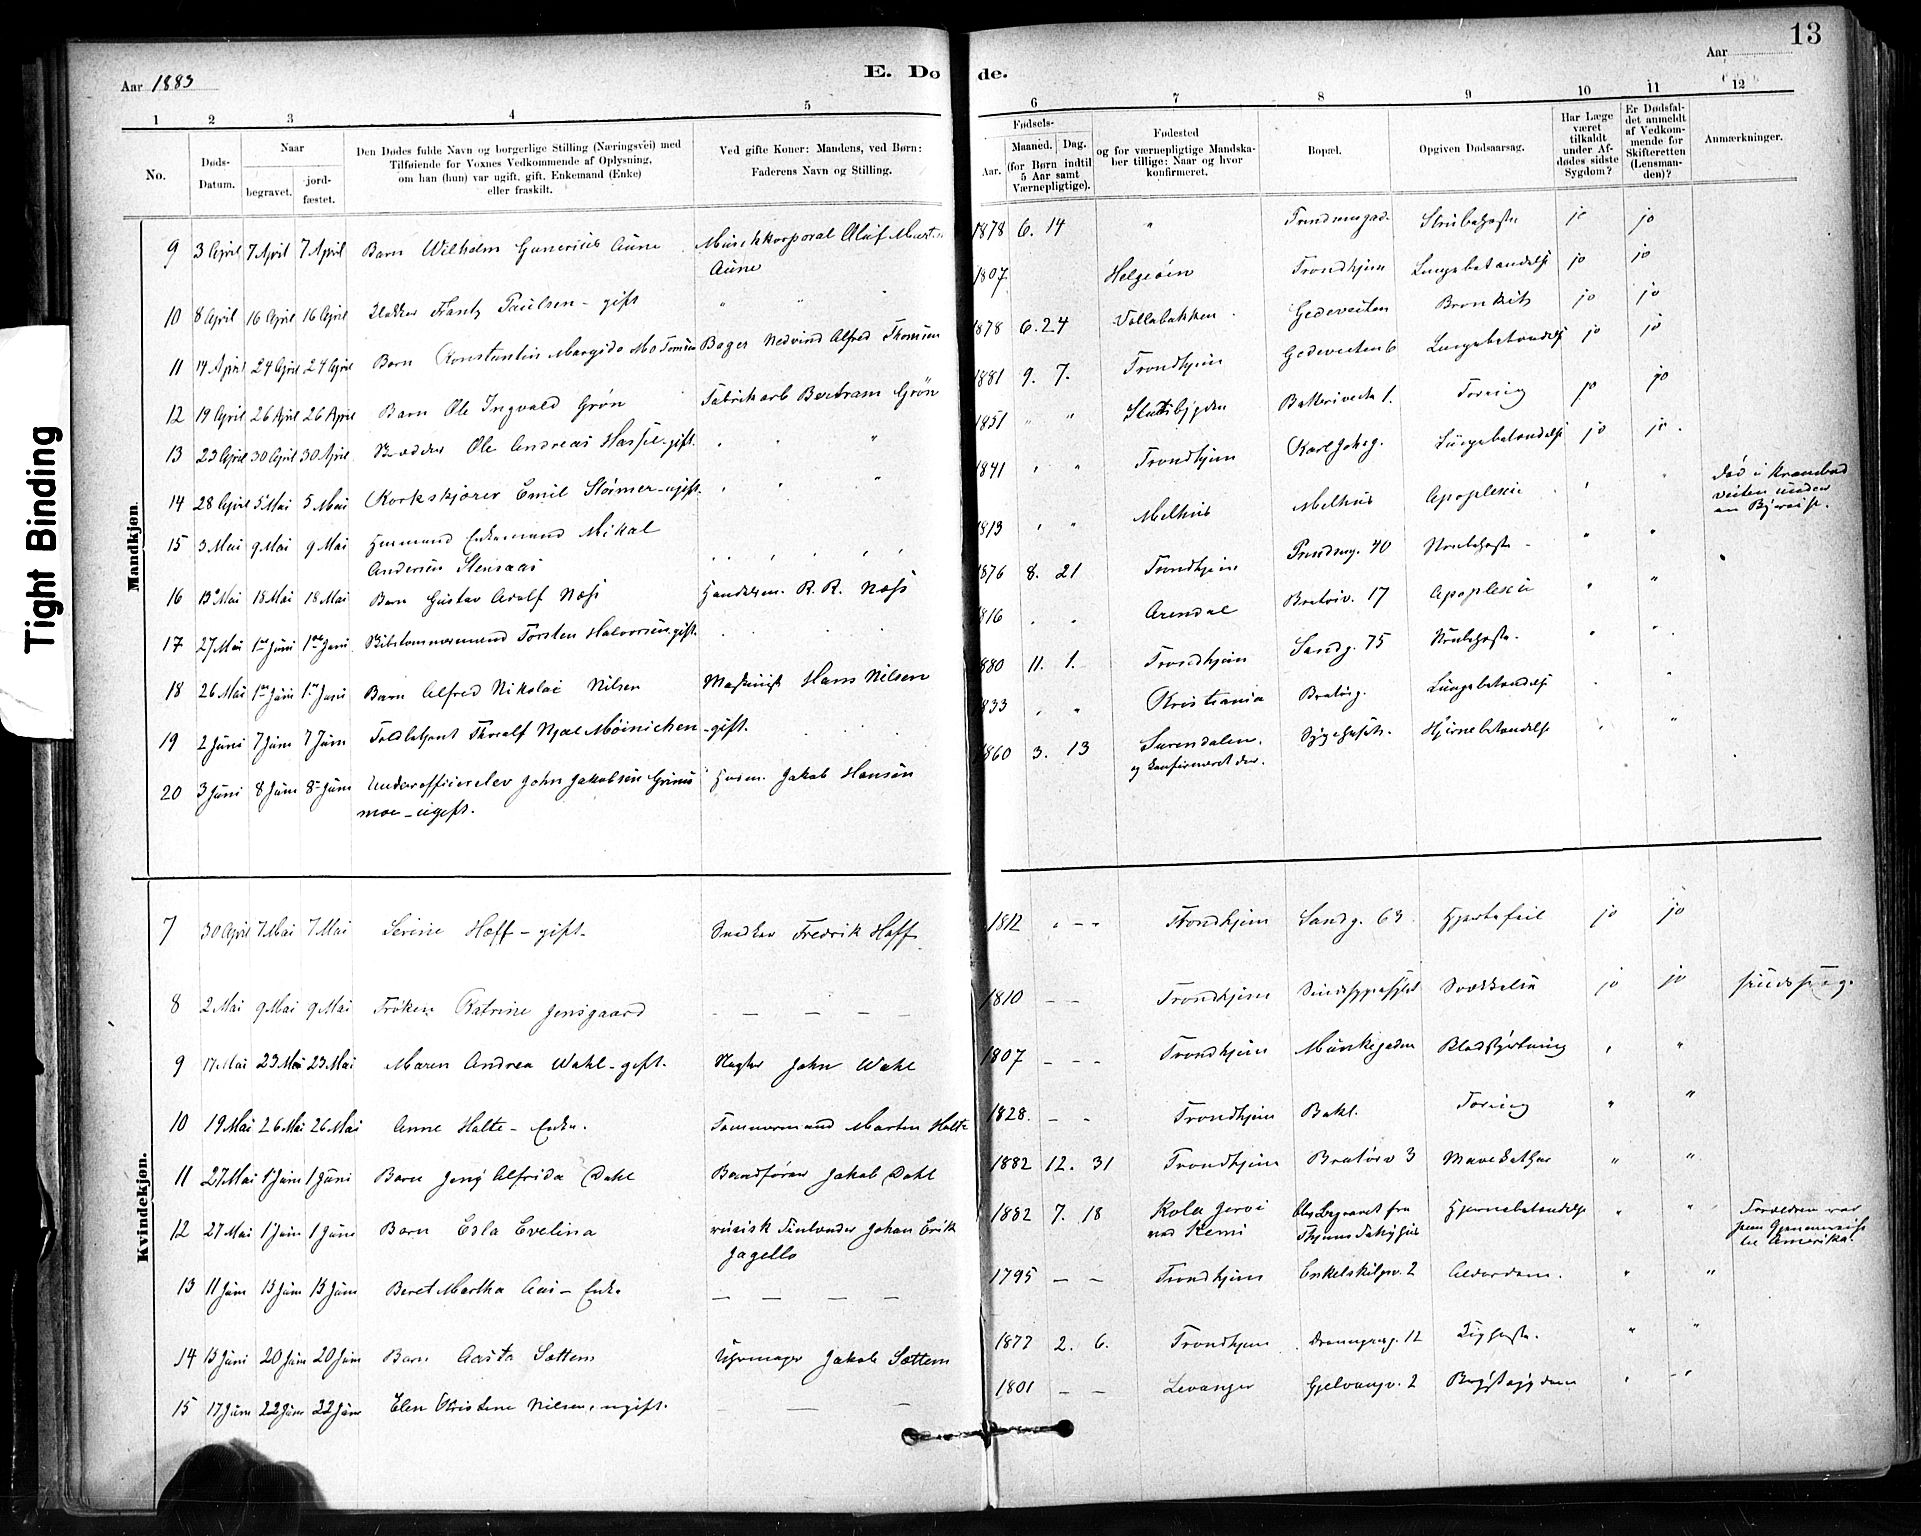 13
Aar 1883
E. Dø de.
Aar
1 2 3 4 5 6 7 8 9 10 11 12
No.
Døds-Datum.
Naar
begravet. jord-fæstet.
Den Dødes fulde Navn og borgerlige Stilling (Næringsvei) med
Tilføiende for Voxnes Vedkommende af Oplysning,
om han (hun) var ugift, gift, Enkemand (Enke)
eller fraskilt.
Ved gifte Koner: Mandens, ved Børn:
Faderens Navn og Stilling.
Fødsels-
Aar. Maaned. Dag.
(for Børn indtil
5 Aar samt
Værnepligtige).
Fødested
og for værnepligtige Mandska-
ber tillige: Naar og hvor
konfirmeret.
Bopæl.
Opgiven Dødsaarsag.
Har Læge
været
tilkaldt
under Af-
dødes sidste
Sygdom?
Er Dødsfal-
det anmeldt
af Vedkom-
mende for
Skifteretten
(Lensman-
den)?
Anmærkninger.
Tight Binding
Mandkjøn.
9 3 April 7 April 7 April Barn Wilhelm Gunerius Aune Musikkorporal Oluf Aune 1878 6. 14 " Strubehoste jo jo
10 8 April 16 April 16 April Frantz Paulsen - gift " " " 1807 Helgeøen Trondhjem Lungebetændelse jo jo
11 14 April 24 April 24 April Barn Konstantin Bager Alfred 1878 6. 24 Vollabakken Gedeveiten Bronkit jo jo
12 19 April 26 April 26 April Barn Ole Ingvald Grøn Fabrikarb Bertram Grøn 1881 9. 7. Trondhjem Gedeveiten 6 Lungebetændelse jo jo
13 23 April 30 April 30 April Ole Andreas gift. " " " 1851 " " Batteriveita 1. Tæring jo jo
14 28 April 5 Mai 5 Mai Korkskjærer Emil Størmer - ugift. " " " 1841 " " Trondhjem Karl Johsg. Lungebetændelse jo jo.
15 3 Mai 9 Mai 9 Mai Huusmand Enkemand Mikal
Andersen Stensaas 1813 " " Melhus Melhus Apoplexia " " Død i
veiten under
en Byreise.
16 13 Mai 18 Mai 18 Mai Barn Gustav Adolf Næss Handelsm. R. R. Næss 1876 8. 21 Trondhjem Prindseng. 40 Strubehoste - " "
17 27 Mai 1ste Juni 1ste Juni Skibstømmermand Torsten Halvorsen gift. 1816 " " Arendal Bratørv. 17 Apoplexia " "
18 26 Mai 1ste Juni 1ste Juni Barn Alfred Nikolai Nilsen Maskinist Hans Nilsen 1880 11. 1. Trondhjem Sandg. 75 Strubehoste. " "
19 2 Juni 7 Juni 7 Juni Toldbetjent Thoralf Njael Møinichen - gift. 1833 " " Kristiania Bratørg. Lungebetændelse " "
20 3 Juni 8 Juni 8 Juni Underofficierelev John Jakobsen
moe - ugift. Husm. Jakob Hansen 1860 3. 13 Surendalen.
og konfirmeret der. Sygehuset. Hjernebetændelse " "
Kvindekjøn.
7 30 April 7 Mai 7 Mai Serine Hoff - gift. Snedker Fredrik Hoff 1812 " - - Trondhjem Sandg. 63 Hjertefeil jo jo
8 2 Mai 9 Mai 9 Mai Frøken Katrine Jensgaard - - - - 1810 - - Trondhjem jo jo
9 17 Mai 23 Mai 23 Mai Maren Andrea Wahl - gift. Vægter John Wahl 1807 - - - Trondhjem Munkegaden " "
10 19 Mai 26 Mai 26 Mai Anne Holte - Enke. Tømmermand Morten Holte 1828. - - Trondhjem Bakl. Tæring " "
11 27 Mai 1 Juni 1 Juni Barn Jeny Alfrida Dahl Jakob Dahl 1882 12. 31 Trondhjem Bratørv 3 Mavekatar " "
12 27 Mai 1 Juni 1 Juni Barn Edla Evelina russisk Finlænder Johan Erik
Jagello 1882 7. 18 Kola Jervi
ved Kemi blev begravet fra
Thjems Hjernebetændelse " " Forældrene var
paa Gjennemreise
til Amerika.
13 11 Juni 13 Juni 13 Juni Beret Martha Aas - Enke - - - - 1795 - - Trondhjem Enkelskilpv. 2 Alderdom. " "
14 13 Juni 20 Juni 20 Juni Barn Aasta Sættem Uhrmager Jakob Sættem 1877 2. 6. Trondhjem Dronningensg. 12 Kighoste. " "
15 17 Juni 22 Juni 22 Juni Elen Kristine Nilsen, ugift. - - - 1801 - - Levanger Gjelvangv. 2 Brystsygdom " "